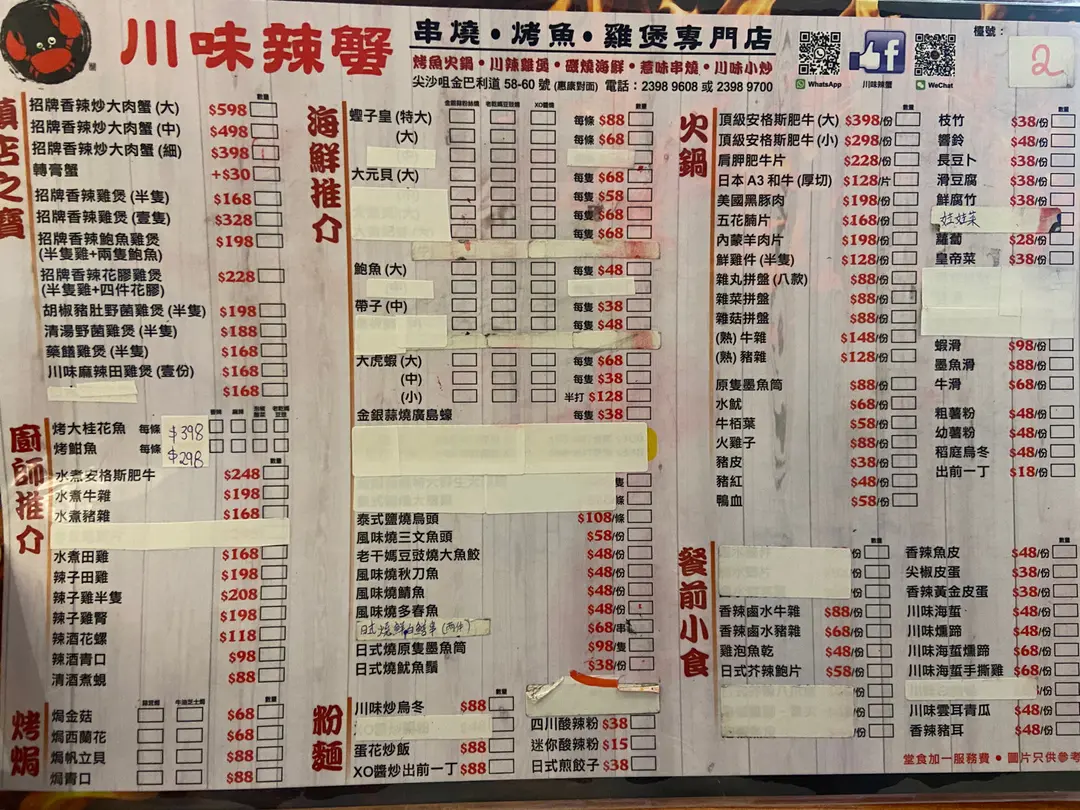 川味辣蟹
串燒•烤魚•雞煲專門店
烤魚火鍋•川辣雞煲•礦燒海鮮•惹味串燒•川味小炒
尖沙咀金巴利道 58-60 號 (惠康對面) 電話：2398 9608 或 2398 9700
WhatsApp
f
川味辣蟹
WeChat
檯號：
2
鎮店之寶
數量
招牌香辣炒大肉蟹 (大) $598
招牌香辣炒大肉蟹 (中) $498
招牌香辣炒大肉蟹 (細) $398
轉膏蟹 +$30
招牌香辣雞煲 (半隻) $168
招牌香辣雞煲 (壹隻) $328
招牌香辣鮑魚雞煲 $198
(半隻雞+兩隻鮑魚)
招牌香辣花膠雞煲 $228
(半隻雞+四件花膠)
胡椒豬肚野菌雞煲 (半隻) $198
清湯野菌雞煲 (半隻) $188
藥膳雞煲 (半隻) $168
川味麻辣田雞煲 (壹份) $168
$168
廚師推介
烤大桂花魚 每條 $398
烤鮒魚 每條 $298
數量
水煮安格斯肥牛 $248
水煮牛雜 $198
水煮豬雜 $168
水煮田雞 $168
辣子田雞 $198
辣子雞半隻 $208
辣子雞腎 $198
辣酒花螺 $118
辣酒青口 $98
清酒煮蜆 $88
烤焗
數量
焗金菇 $68
焗西蘭花 $68
焗帆立貝 $88
焗青口 $88
海鮮推介
金銀蒜粉絲燒 老乾媽豆豉燒 XO醬燒 數量
蟶子皇 (特大) 每條 $88
(大) 每條 $68
大元貝 (大) 每隻 $68
每隻 $58
每隻 $68
每隻 $68
鮑魚 (大) 每隻 $48
帶子 (中) 每隻 $38
每隻 $48
大虎蝦 (大) 每隻 $68
(中) 每隻 $38
(小) 半打 $128
金銀蒜燒廣島蠔 每隻 $38
隻
泰式鹽燒烏頭 $108/條
風味燒三文魚頭 $58/份
老干媽豆豉燒大魚餃 $48/份
風味燒秋刀魚 $48/份
風味燒鯖魚 $48/份
風味燒多春魚 $48/份
$68/串
日式燒原隻墨魚筒 $98/隻
日式燒魷魚鬚 $38/份
粉麵
數量
川味炒烏冬 $88
蛋花炒飯 $88
XO醬炒出前一丁 $88
四川酸辣粉 $38
迷你酸辣粉 $15
日式煎餃子 $38
火鍋
數量
頂級安格斯肥牛 (大) $398/份
頂級安格斯肥牛 (小) $298/份
肩胛肥牛片 $228/份
日本 A3 和牛 (厚切) $128/片
美國黑豚肉 $198/份
五花腩片 $168/份
內蒙羊肉片 $198/份
鮮雞件 (半隻) $128/份
雜丸拼盤 (八款) $88/份
雜菜拼盤 $88/份
雜菇拼盤 $88/份
(熟) 牛雜 $148/份
(熟) 豬雜 $128/份
原隻墨魚筒 $88/份
水魷 $68/份
牛栢葉 $58/份
火雞子 $88/份
豬皮 $38/份
豬紅 $48/份
鴨血 $58/份
數量
枝竹 $38/份
響鈴 $48/份
長豆卜 $38/份
滑豆腐 $38/份
鮮腐竹 $38/份
娃娃菜
蘿蔔 $28/份
皇帝菜 $38/份
蝦滑 $98/份
墨魚滑 $88/份
牛滑 $68/份
粗薯粉 $48/份
幼薯粉 $48/份
稻庭烏冬 $48/份
出前一丁 $18/份
餐前小食
數量
香辣鹵水牛雜 $88/份
香辣鹵水豬雜 $68/份
雞泡魚乾 $48/份
日式芥辣鮑片 $58/份
數量
香辣魚皮 $48/份
尖椒皮蛋 $38/份
香辣黃金皮蛋 $38/份
川味海蜇 $48/份
川味燻蹄 $48/份
川味海蜇燻蹄 $68/份
川味海蜇手撕雞 $68/份
川味雲耳青瓜 $48/份
香辣豬耳 $48/份
堂食加一服務費 • 圖片只供參考